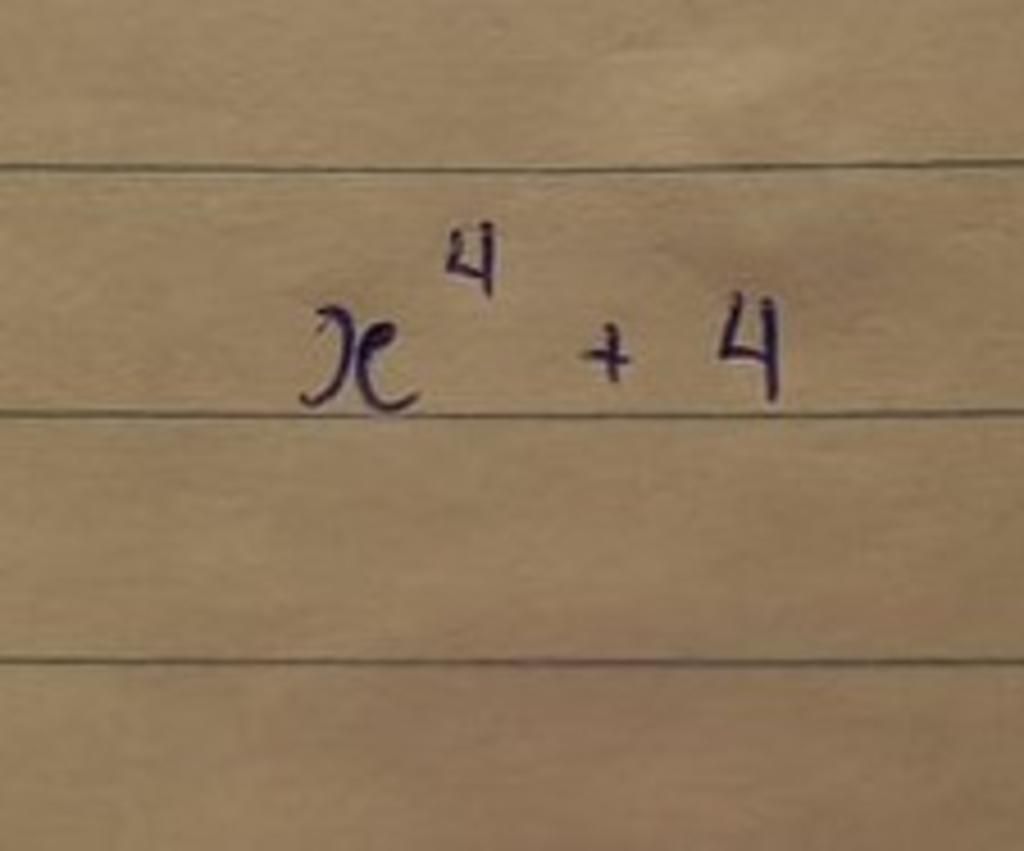 x⁴ + 4